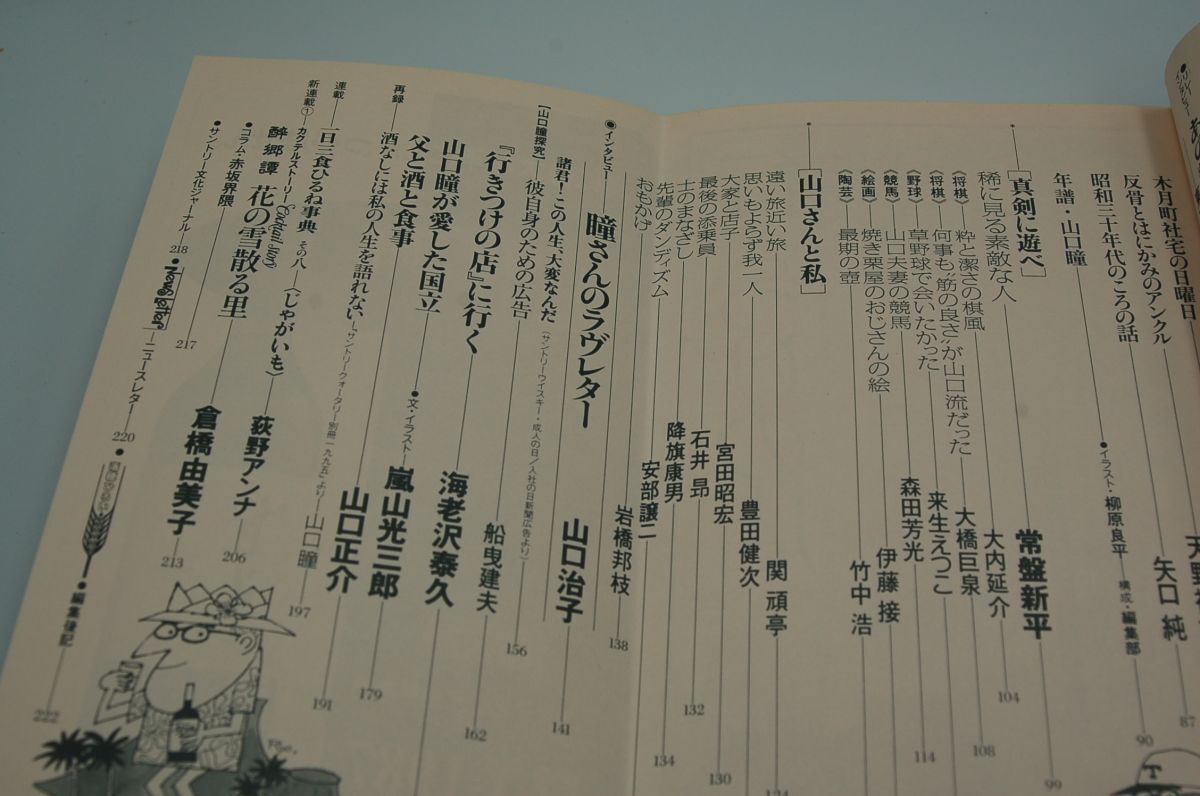 木月町社宅の日曜日
反骨とはにかみのアンクル
矢口 純
87
昭和三十年代のころの話
90
年譜・山口瞳
●イラスト・柳原良平 構成・編集部
［真剣に遊べ］
稀に見る素敵な人
常盤新平
99
〈将棋〉 粋と潔さの棋風
大内延介
104
〈将棋〉 何事も“筋の良さ”が山口流だった
大橋巨泉
108
〈野球〉 草野球で会いたかった
来生えつこ
〈競馬〉 山口夫妻の競馬
森田芳光
114
〈絵画〉 焼き栗屋のおじさんの絵
伊藤 接
〈陶芸〉 最期の壺
竹中 浩
［山口さんと私］
遠い旅近い旅
関 頑亭
思いもよらず我一人
豊田健次
大家と店子
宮田昭宏
130
最後の添乗員
石井 昂
132
士のまなざし
降旗康男
先輩のダンディズム
安部譲二
134
おもかげ
岩橋邦枝
138
◉インタビュー
瞳さんのラヴレター
山口治子
141
【山口瞳探究】
諸君！この人生、大変なんだ
（サントリーウイスキー・成人の日／入社の日新聞広告より）
彼自身のための広告
船曳建夫
156
『行きつけの店』に行く
海老沢泰久
162
山口瞳が愛した国立
●文・イラスト 嵐山光三郎
179
父と酒と食事
山口正介
191
再録
酒なしには私の人生を語れない
（サントリークォータリー別冊一九九五より）
山口瞳
197
連載
一日三食ひるね事典 その八
〈じゃがいも〉
荻野アンナ
206
新連載①
カクテルストーリー Cocktail story
酔郷譚 花の雪散る里
倉橋由美子
213
●コラム・赤坂界隈
217
●サントリー文化ジャーナル
218
News Letter
ニュースレター
220
●編集後記
222